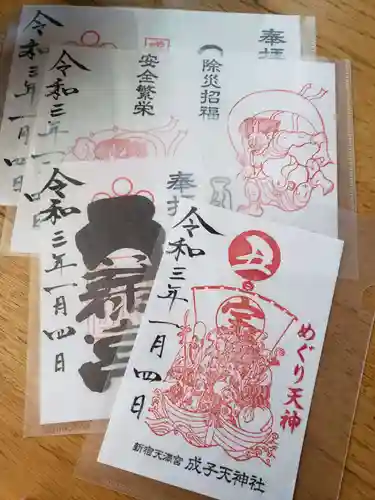 奉拝
令和三年一月四日
除災招福
安全繁栄
令和三年一月四日
奉拝
令和三年一月四日
丑
宝
めぐり天神
令和三年一月四日
新宿天満宮 成子天神社